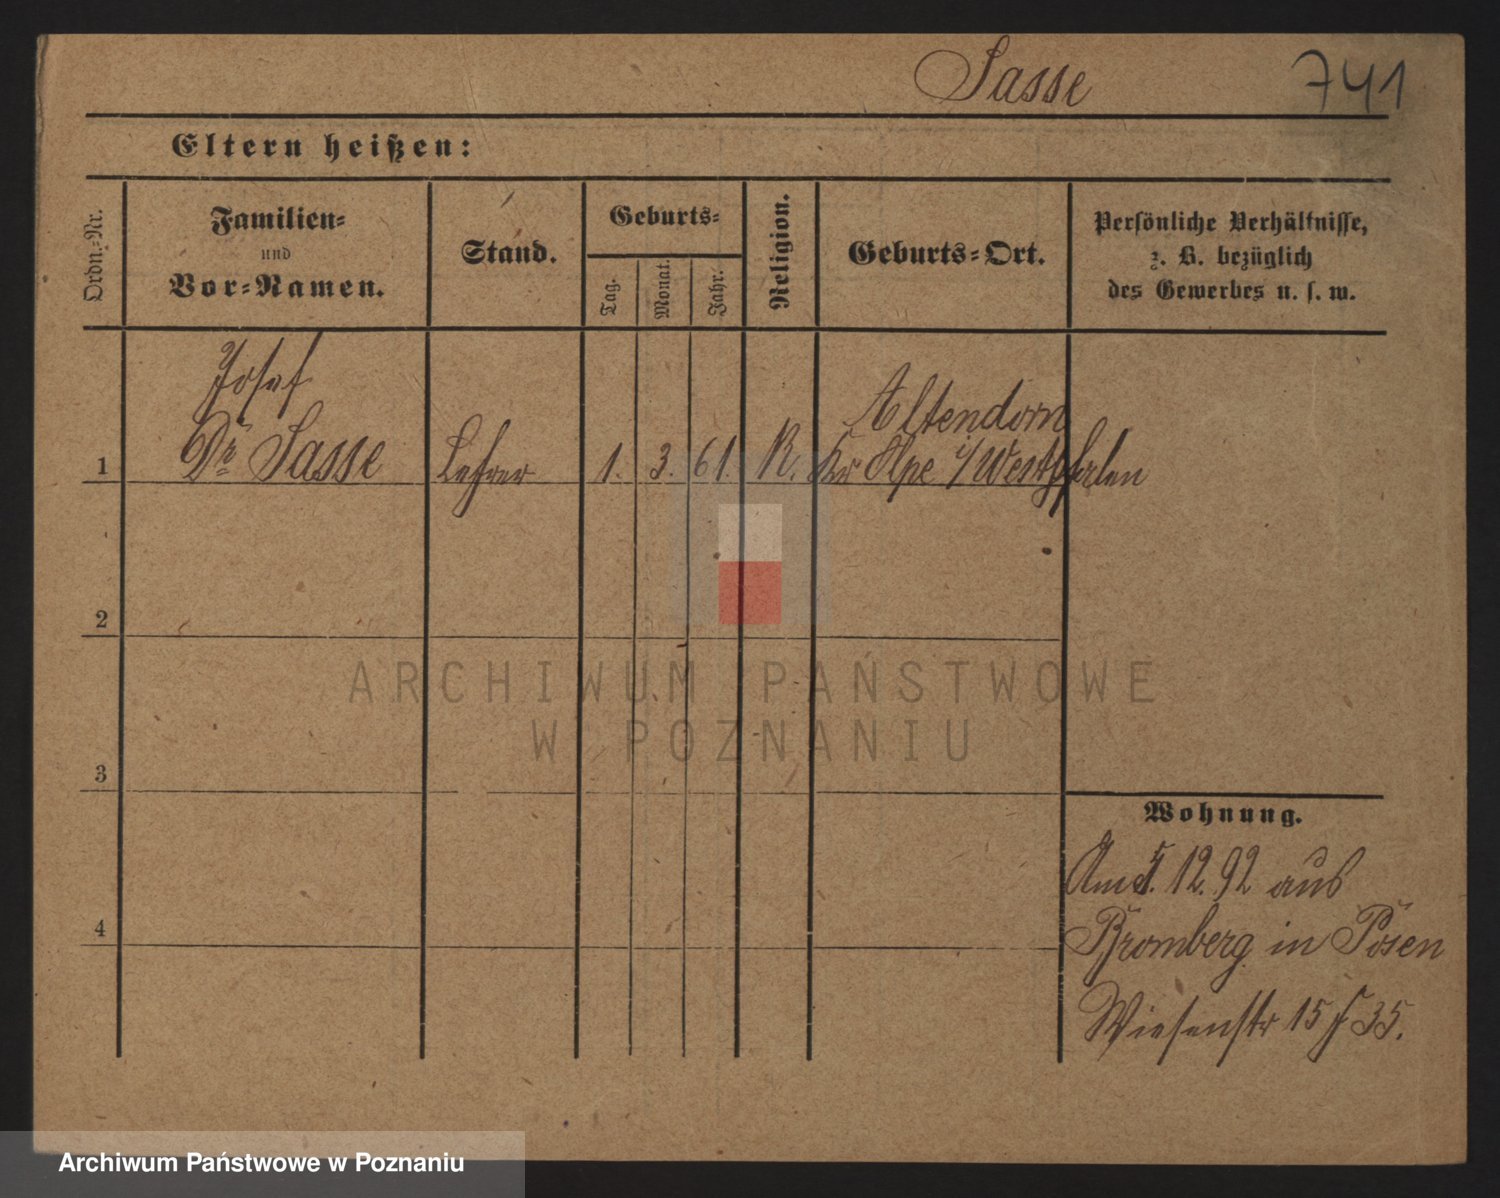 Sasse 741
Eltern heißen:
Ordn.-Nr.
Familien-
und
Vor-Namen.
Stand.
Geburts-
Tag.
Monat.
Jahr.
Religion.
Geburts-Ort.
Persönliche Verhältnisse,
z. B. bezüglich
des Gewerbes u. s. w.
Josef
Altendorn
1 Dr Sasse Lehrer 1. 3. 61. K. Kr Olpe i/Westphalen
2
3
4
Wohnung.
Am 1. 12. 92 aus
Bromberg in Posen
Wiesenstr 15 f 35.
ARCHIWUM PAŃSTWOWE
W POZNANIU
Archiwum Państwowe w Poznaniu